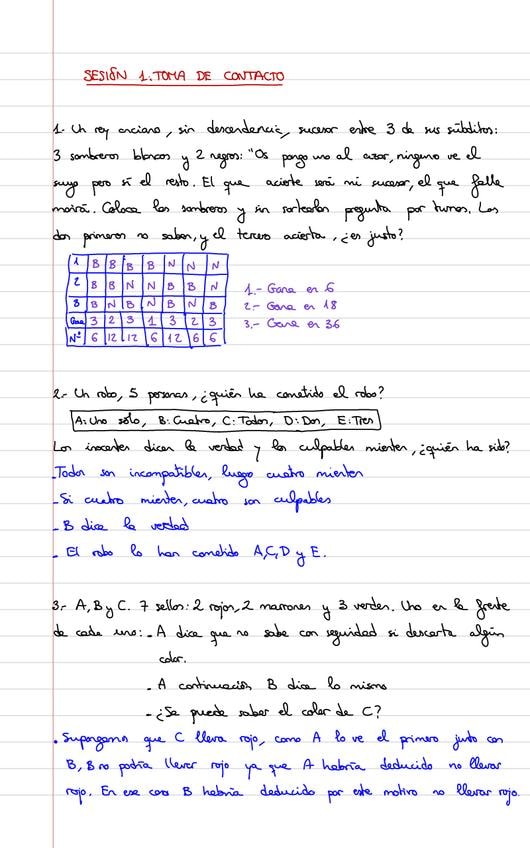 SESIÓN 1. TOMA DE CONTACTO
1.- Un rey anciano, sin descendencia, sucesor entre 3 de sus súbditos:
3 sombreros blancos y 2 negros: "Os pongo uno al azar, ninguno ve el
suyo pero sí el resto. El que acierte será mi sucesor, el que falle
morirá. Coloca los sombreros y sin sortearlos pregunta por turnos. Los
dos primeros no saben, y el tercero acierta, ¿es justo?
1 B B B B N N N
2 B B N N B B N
3 B N B N B N B
Gana 3 2 3 1 3 2 3
Nº 6 12 12 6 12 6 6
1.- Gana en 6
2.- Gana en 18
3.- Gana en 36
2.- Un robo, 5 personas, ¿quién ha cometido el robo?
A: Uno sólo, B: Cuatro, C: Todos, D: Dos, E: Tres
Los inocentes dicen la verdad y los culpables mienten, ¿quién ha sido?
- Todas son incompatibles, luego cuatro mienten
- Si cuatro mienten, cuatro son culpables
- B dice la verdad
- El robo lo han cometido A, C, D y E.
3.- A, B y C. 7 sellos: 2 rojos, 2 marrones y 3 verdes. Uno en la frente
de cada uno: - A dice que no sabe con seguridad si descarta algún
color.
- A continuación B dice lo mismo
- ¿Se puede saber el color de C?
• Supongamos que C lleva rojo, como A lo ve el primero junto con
B, B no podría llevar rojo ya que A habría deducido no llevar
rojo. En ese caso B habría deducido por este motivo no llevar rojo.